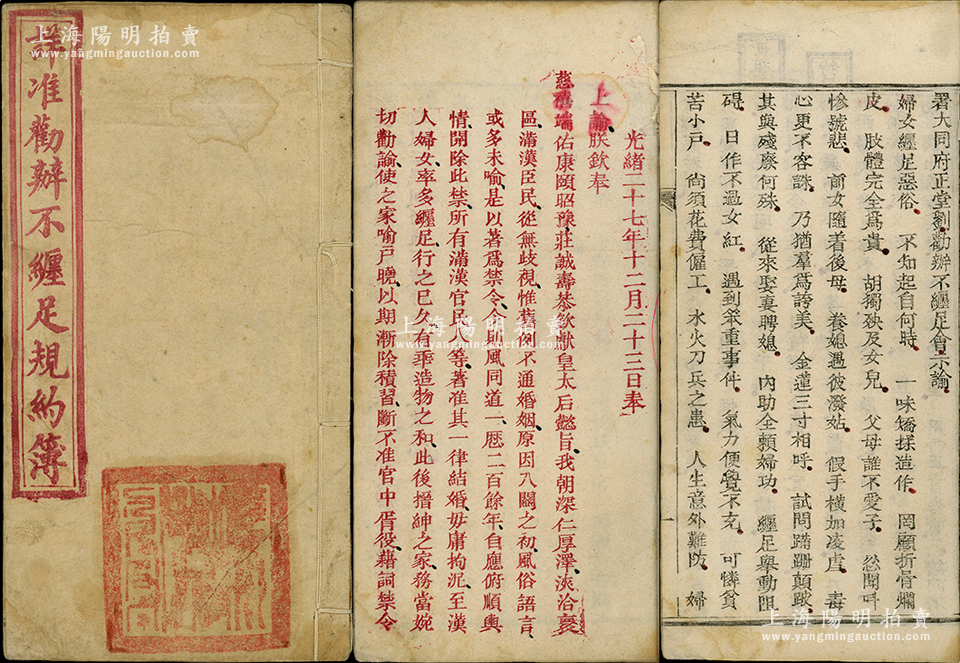 詳准勸辦不纏足規約簿
上海陽明拍賣
www.yangmingauction.com
光緒二十七年十二月二十三日奉
上諭朕欽奉
慈禧端佑康頤昭豫莊誠壽恭欽獻皇太后懿旨我朝深仁厚澤浹洽寰
區滿漢臣民從無歧視惟舊例不通婚姻原因入關之初風俗語言
或多未喻是以著為禁令今則風同道一歷二百餘年自應俯順輿
情開除此禁所有滿漢官民人等著准其一律結婚毋庸拘泥至漢
人婦女率多纏足行之已久有乖造物之和此後搢紳之家務當婉
切勸諭使之家喻戶曉以期漸除積習斷不准官中胥役藉詞禁令
上海陽明拍賣
www.yangmingauction.com
署大同府正堂劉勸辦不纏足會示諭
婦女纏足惡俗　不知起自何時　一味矯揉造作　罔顧折骨爛
皮　肢體完全為貴　胡獨殃及女兒　父母誰不愛子　忿聞呼
慘號悲　前女隨着後母　養媳遇彼潑姑　假手橫加凌虐　毒
心更不容誅　乃猶羣為誇美　金蓮三寸相呼　試問蹣跚顛跛
其與殘廢何殊　從來娶妻聘媳　內助全賴婦功　纏足舉動阻
礙　日作不過女紅　遇到笨重事件　氣力便覺不充　可憐貧
苦小戶　尚須花費僱工　水火刀兵之患　人生意外難防　婦
一
上海陽明拍賣
www.yangmingauction.com